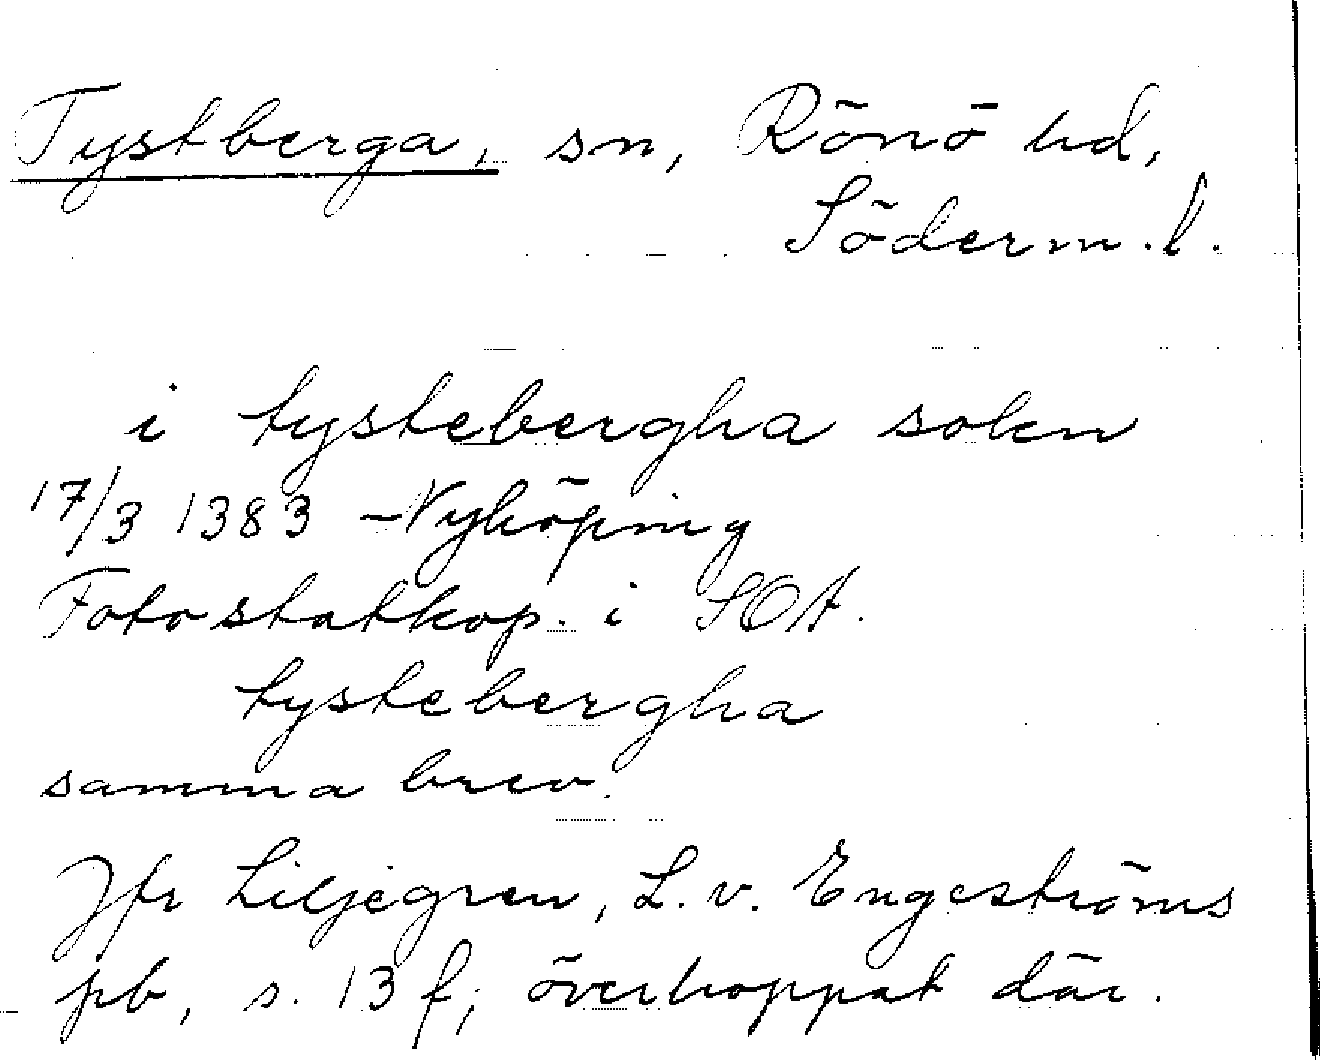 Tystberga, sn, Rönö hd,
Söderm.l.
i tystebergha sokn
17/3 1383 - Nyköping
Fotostatkop. i SOA.
tystebergha
samma brev.
Jfr Liljegren, L. v. Engeströms
pb, s. 13 f; överhoppat där.